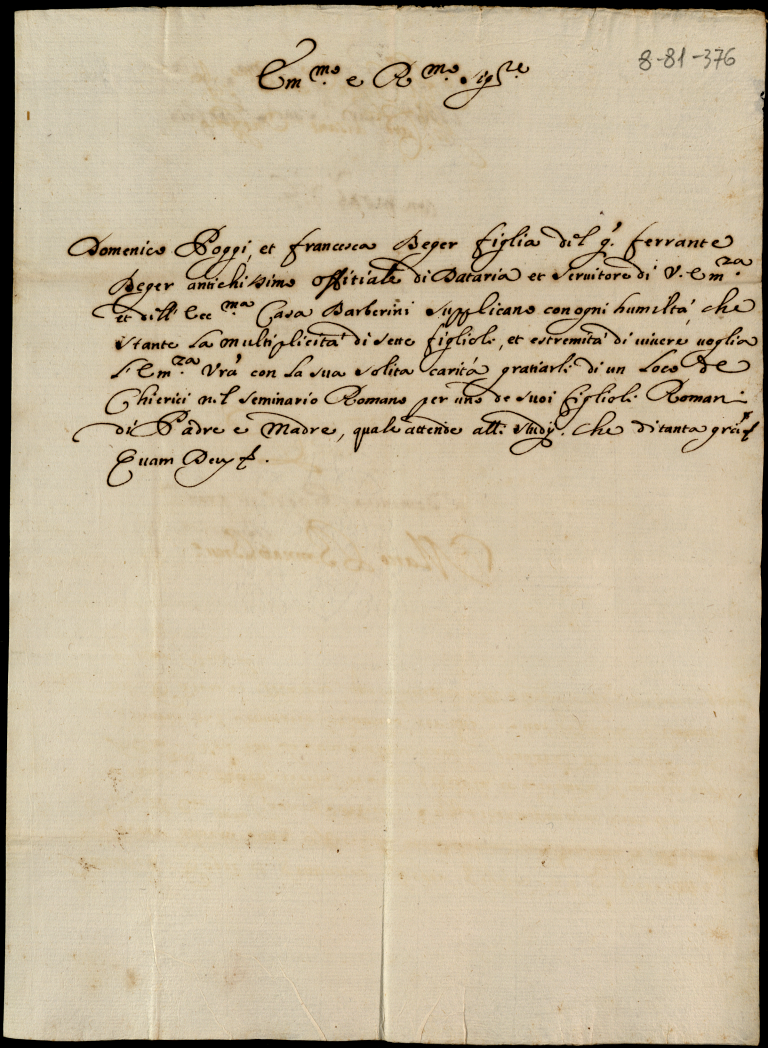 8-81-376
Em.mo e R.mo Sig.re
Domenico Poppi, et francesca Beger figlia del q. ferrante
Beger antichissimo offitiale di Dataria et Servitore di V. Em.za
et dell' Ecc.ma Casa Barberini supplicano con ogni humiltà, che
stante la multiplicità di sette figlioli, et estremità di vivere voglia
l'Em.za Vrã con la sua solita carità gratiarli di un Loco de
Chierici nel seminario Romano per uno de suoi figlioli Romani
di Padre e Madre, quale attende alli studij. che di tanta